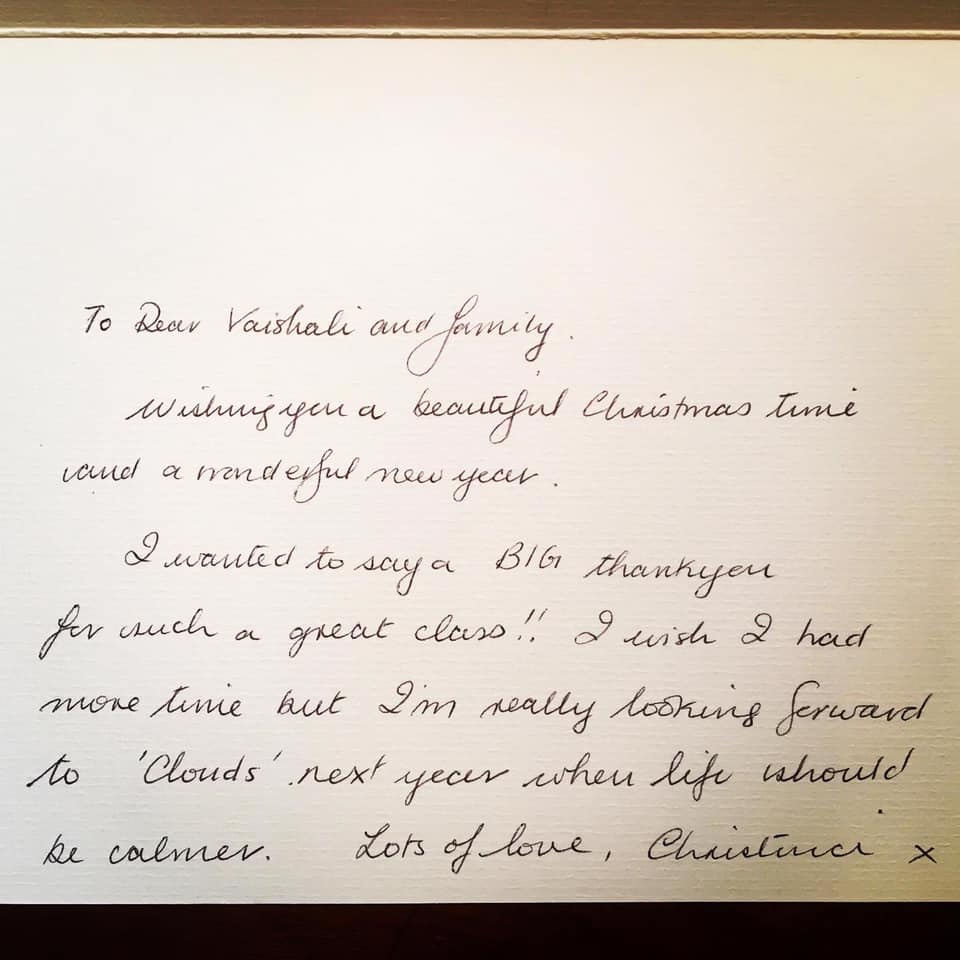 To Dear Vaishali and family.
Wishing you a beautiful Christmas time
and a wonderful new year.
I wanted to say a BIG thankyou
for such a great class!! I wish I had
more time but I'm really looking forward
to 'Clouds' next year when life should
be calmer. Lots of love, Christina x